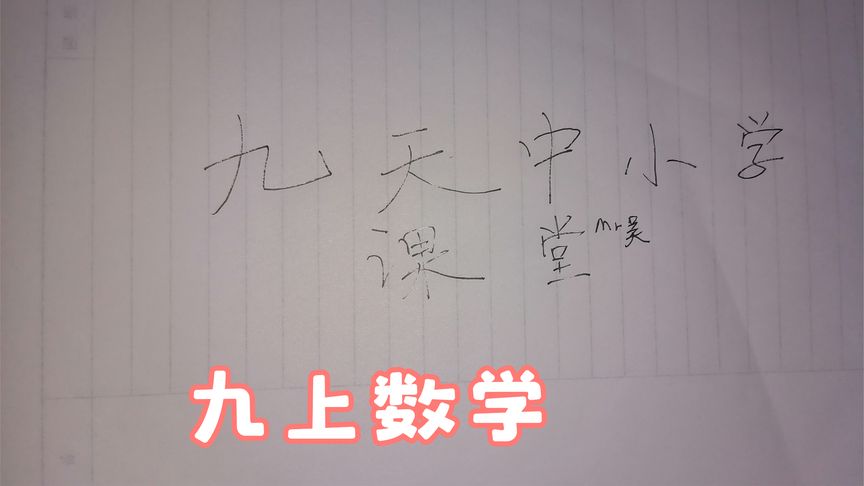 九天中小学
课堂 Mr吴
九上数学